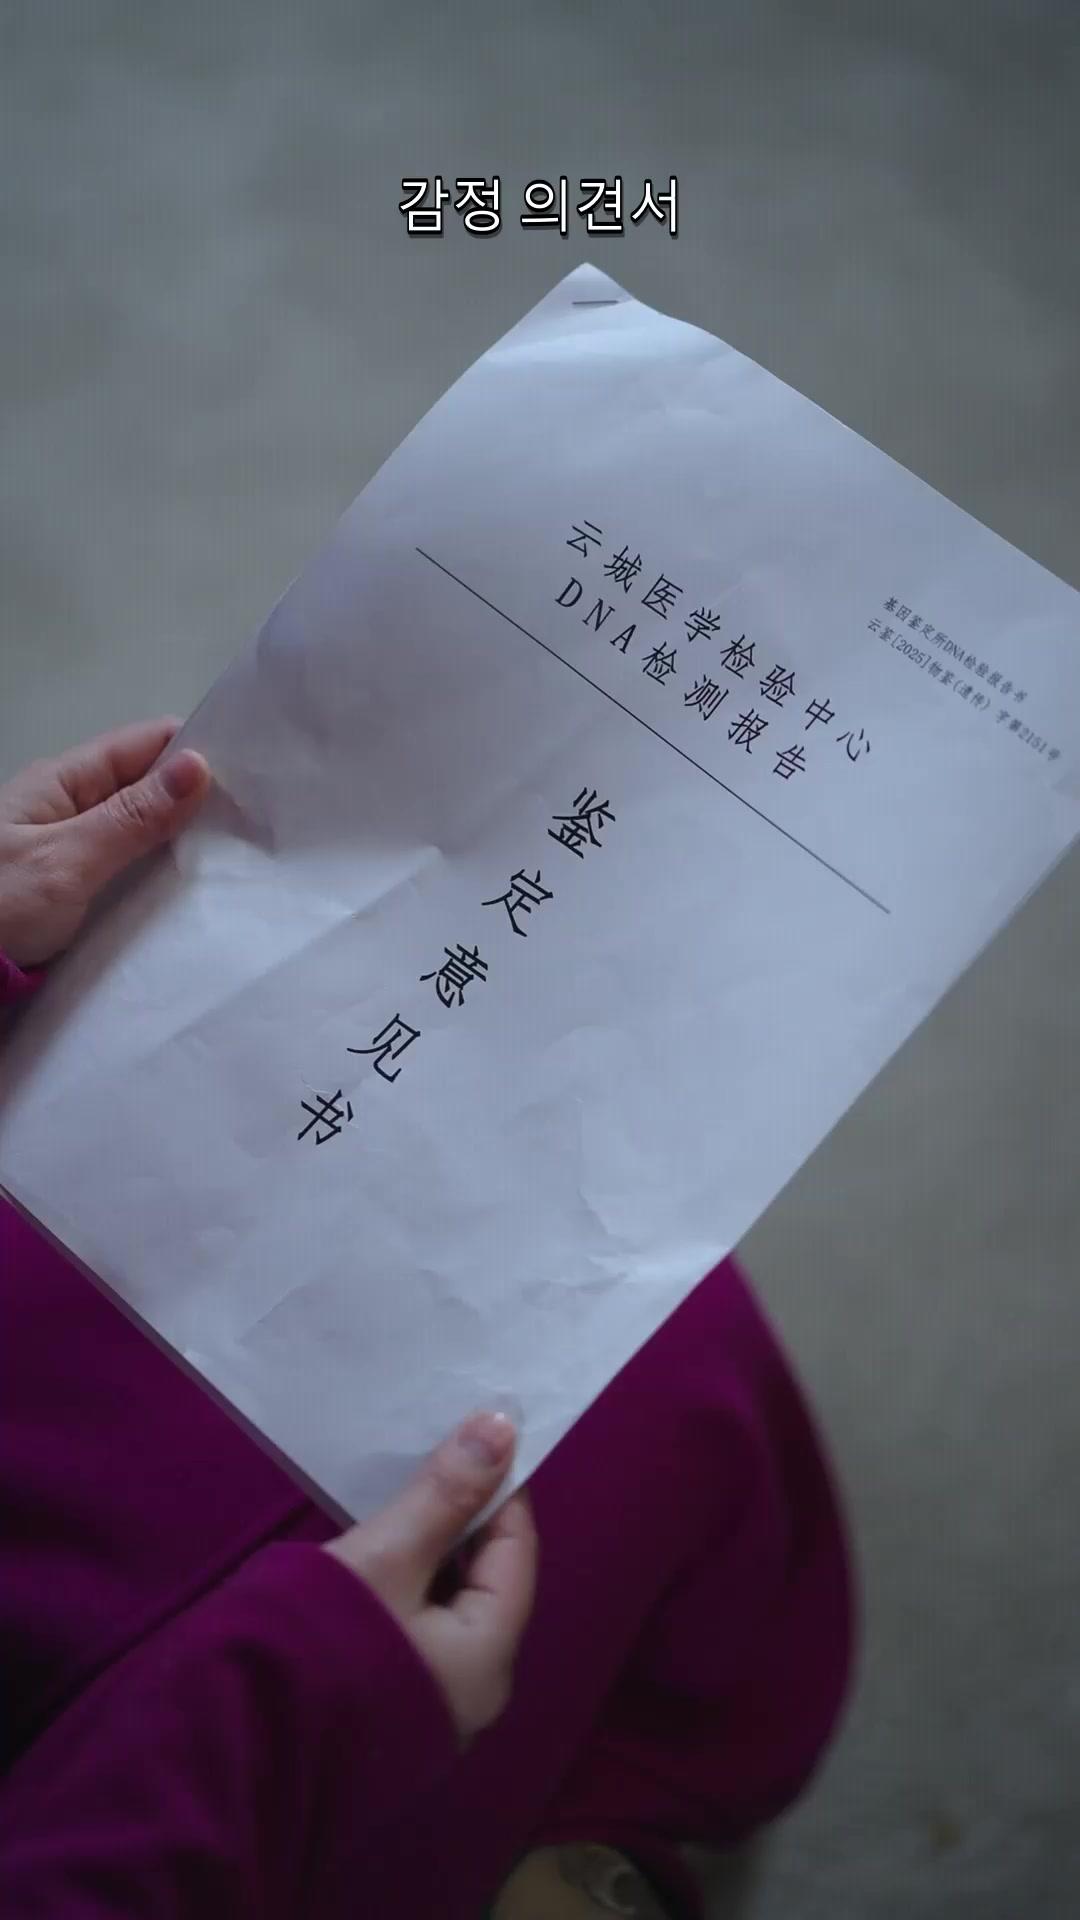 감정 의견서
云城医学检验中心
DNA检测报告
基因鉴定所DNA检验报告书
云鉴[2025]物鉴(遗传)字第2151号
鉴定意见书